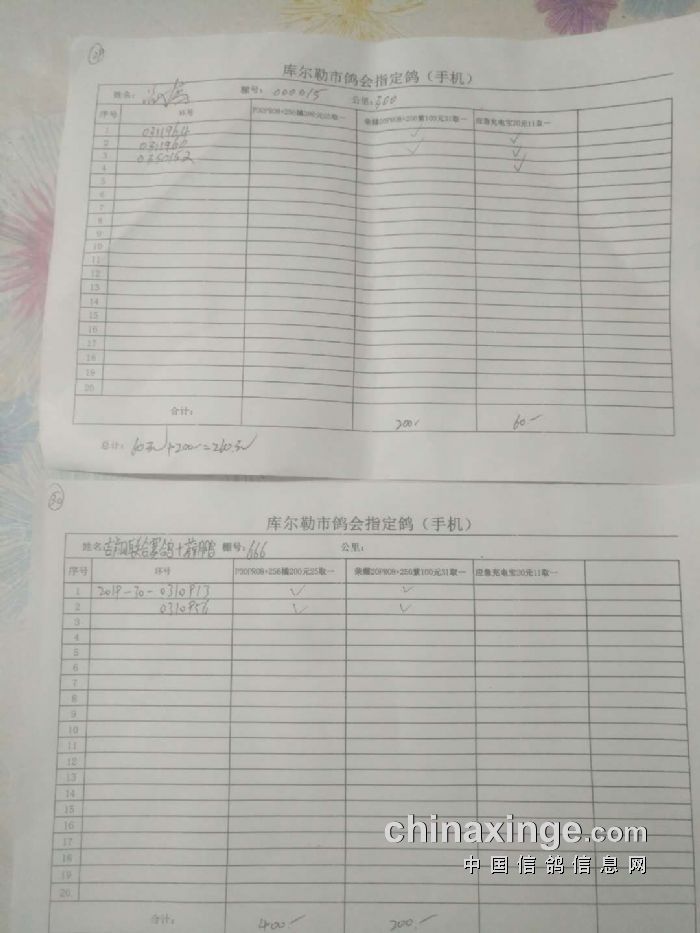 29
库尔勒市鸽会指定鸽（手机）
姓名： 棚号：000015 公里：300
序号 环号 P30PRO8+256橘200元25取一 荣耀20PRO8+256紫100元31取一 应急充电宝20元11取一
1 0311964 ✓
2 0311960 ✓ ✓
3 0350152 ✓ ✓
4 ✓
5
6
7
8
9
10
11
12
13
14
15
16
17
18
19
20
合计： 200- 60-
总计：60元+200=260元
30
库尔勒市鸽会指定鸽（手机）
姓名 棚号：666 公里：
序号 环号 P30PRO8+256橘200元25取一 荣耀20PRO8+256紫100元31取一 应急充电宝20元11取一
1 2019-30-0310913 ✓ ✓
2 0310956 ✓ ✓
3
4
5
6
7
8
9
10
11
12
13
14
15
16
17
18
19
20
合计： 400- 200-
chinaxinge.com
中国信鸽信息网